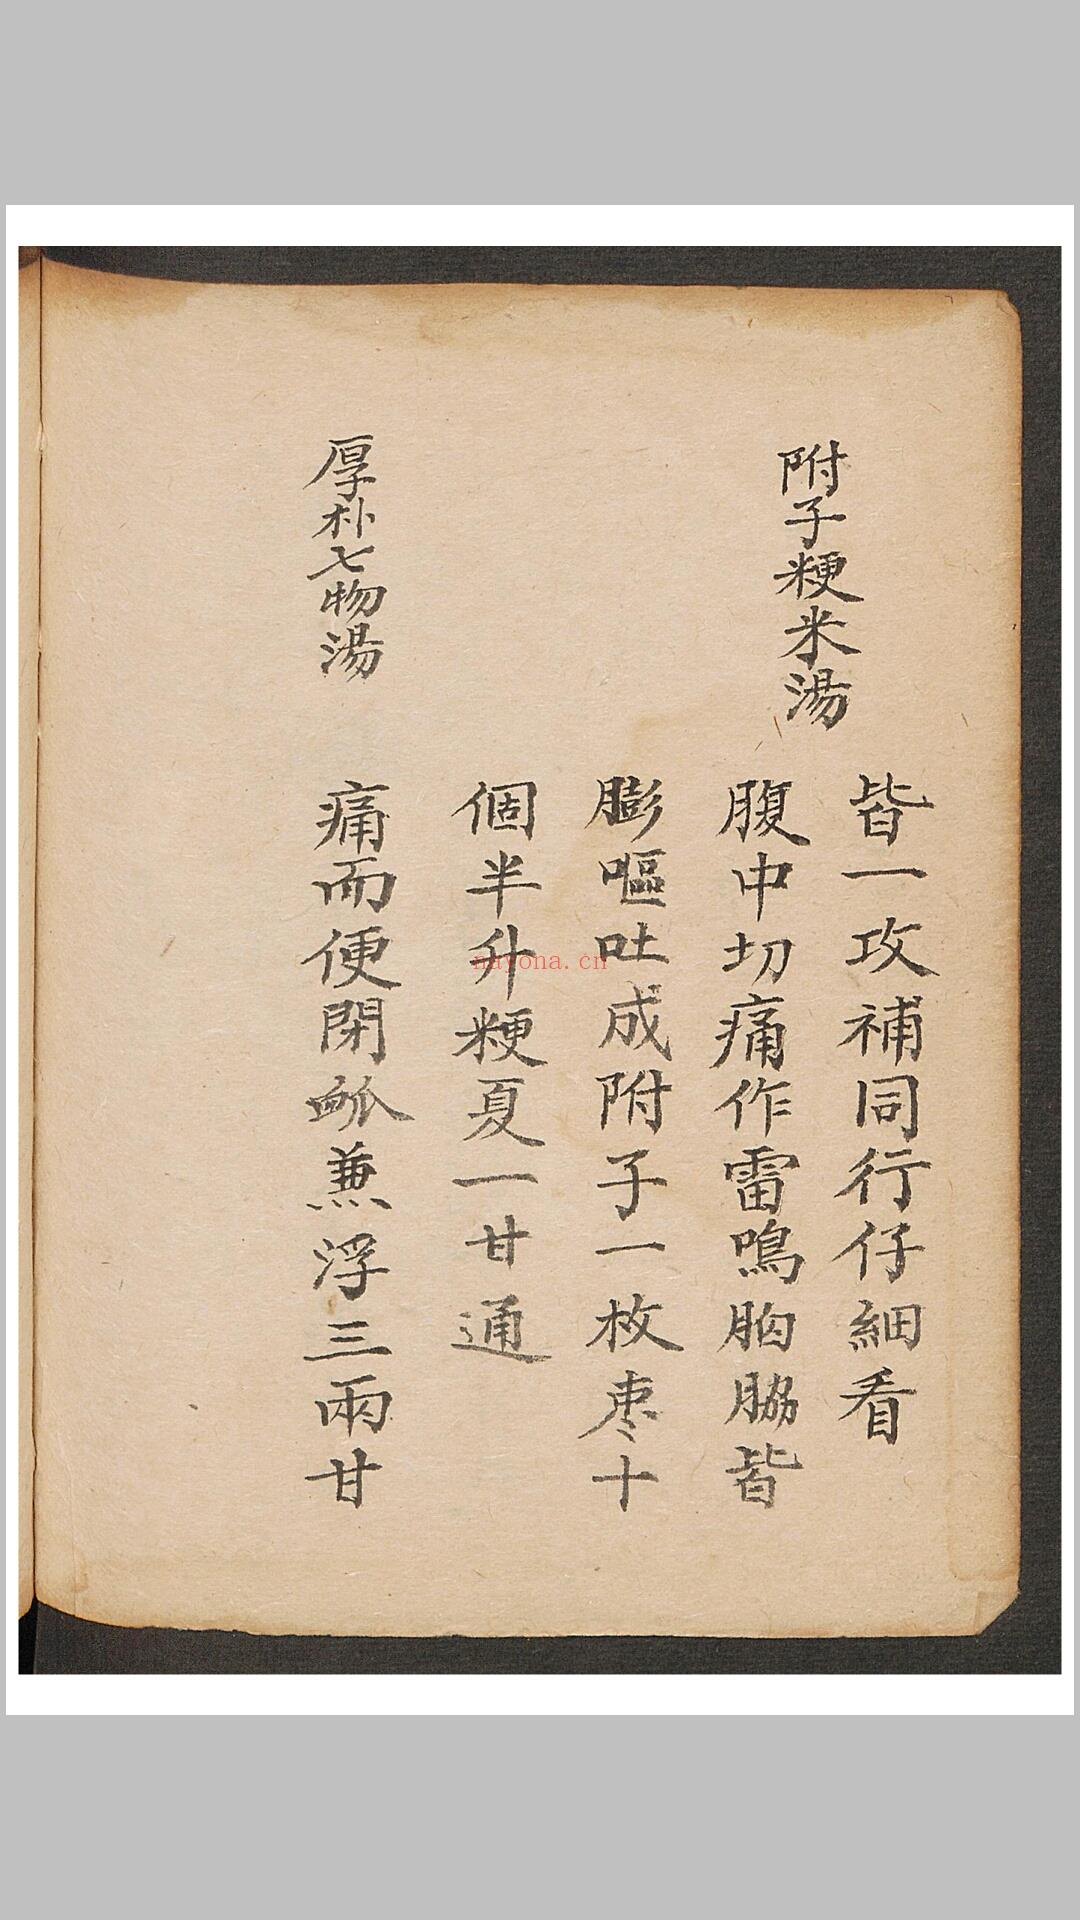 皆一攻補同行仔細看
附子粳米湯
腹中切痛作雷鳴胸脇皆
膨嘔吐成附子一枚枣十
個半升粳夏一甘通
厚朴七物湯
痛而便閉䘑兼浮三兩甘
nayona.cn